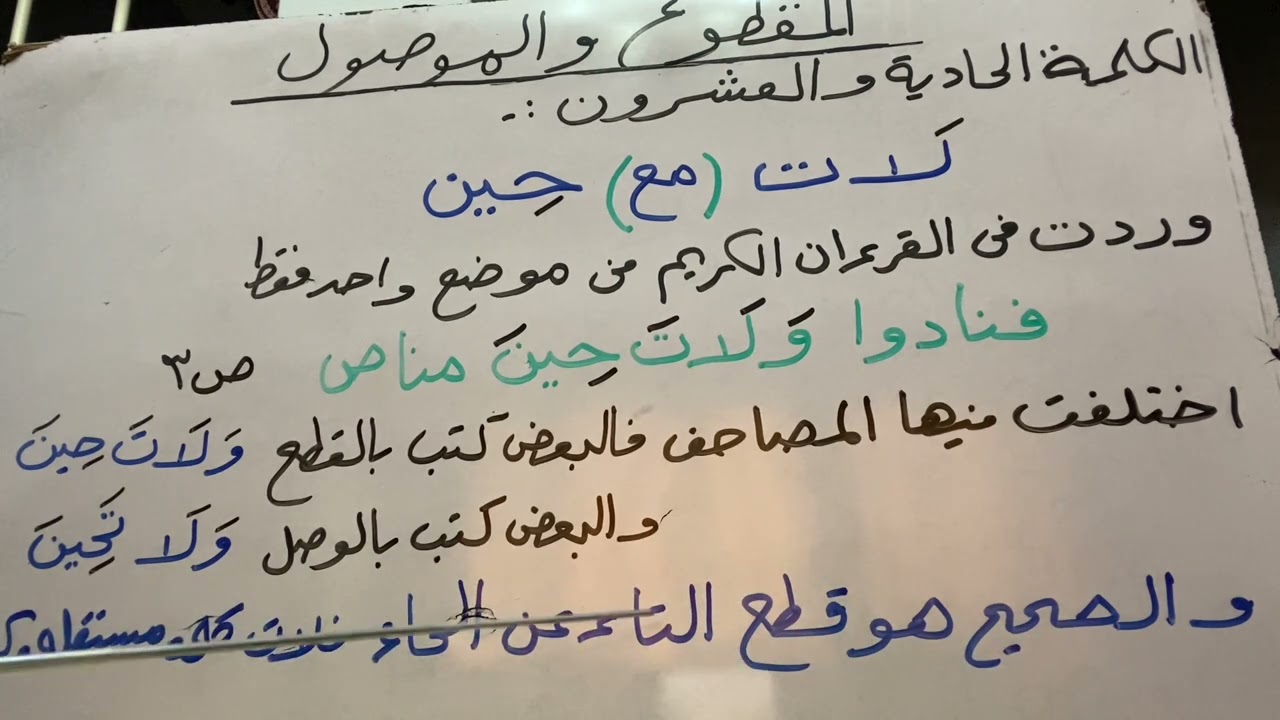 المقطوع والموصول
الكلمة الحادية والعشرون :.
لَات (مع) حِين
وردت فى القرءان الكريم فى موضع واحد فقط
فنادوا وَلَاتَ حِينَ مناص ص٣
اختلفت فيها المصاحف فالبعض كتب بالقطع وَلَاتَ حِينَ
والبعض كتب بالوصل وَلَا تَحِينَ
والصحيح هو قطع التاء عن الحاء فلات كلمة مستقلة